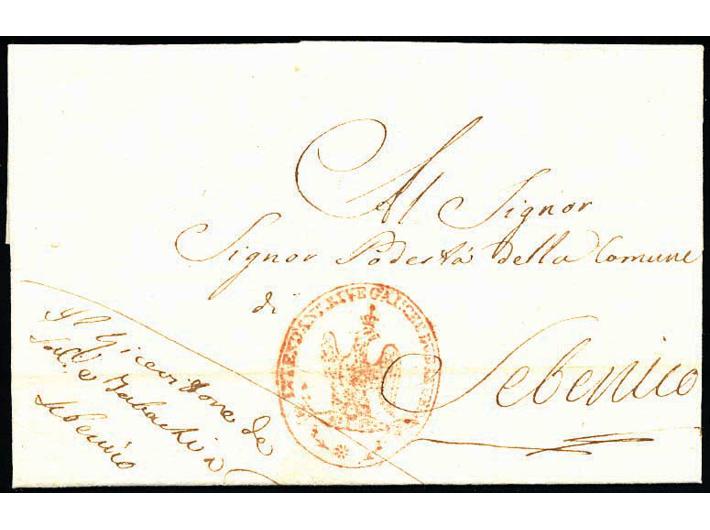 Al Signor
Signor Podestà della Comune
di
Sebenico
Il Ricevidore de
Sali e Tabachi a
Sebenico